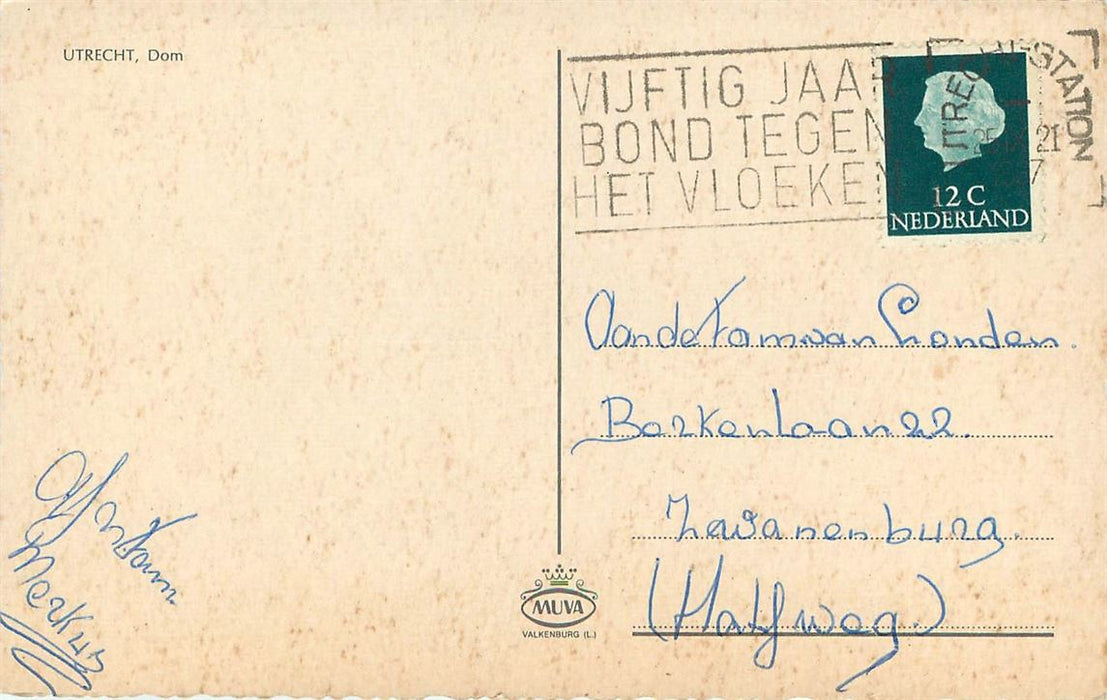 UTRECHT, Dom
VIJFTIG JAAR
BOND TEGEN
HET VLOEKEN
UTRECHT-STATION
21
12 C
NEDERLAND
Aan de Fam van Londen.
Berkenlaan 22.
Zwanenburg.
(Halfweg.)
Afz Fam
MUVA
VALKENBURG (L.)